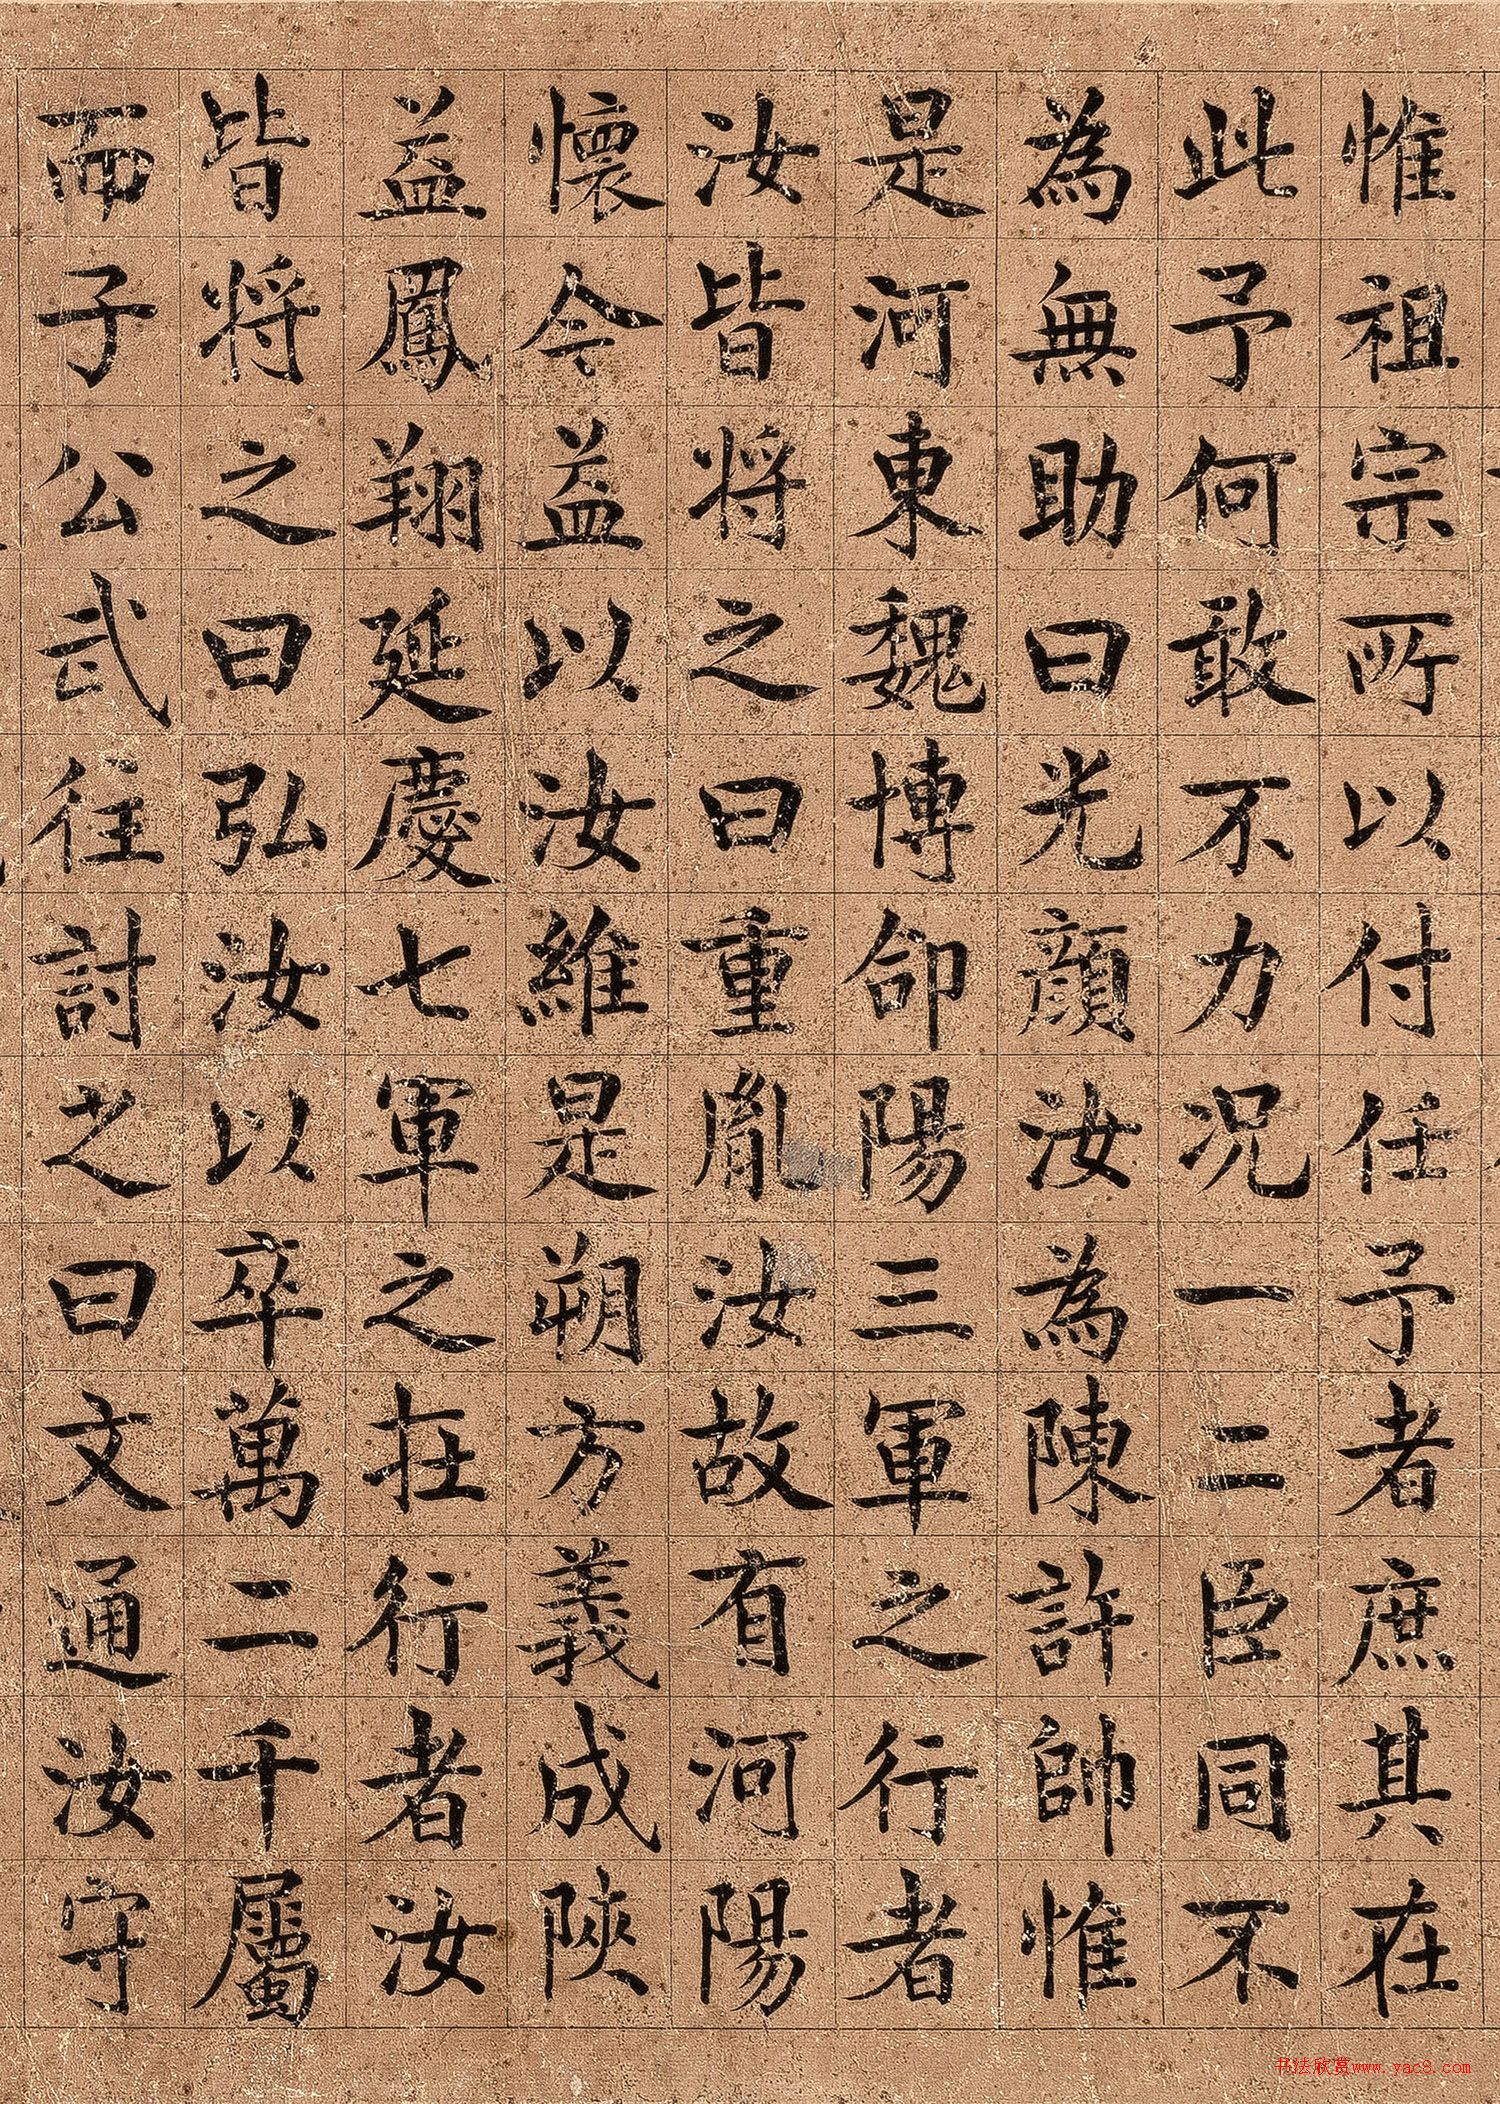 惟祖宗所以付任予者庶其在
此予何敢不力况一二臣同不
為無助曰光顔汝為陳許帥惟
是河東魏博郃陽三軍之行者
汝皆將之曰重胤汝故有河陽
懷今益以汝維是朔方義成陝
益鳳翔延慶七軍之在行者汝
皆將之曰弘汝以卒萬二千屬
而子公武往討之曰文通汝守
书法欣赏www.yac8.com